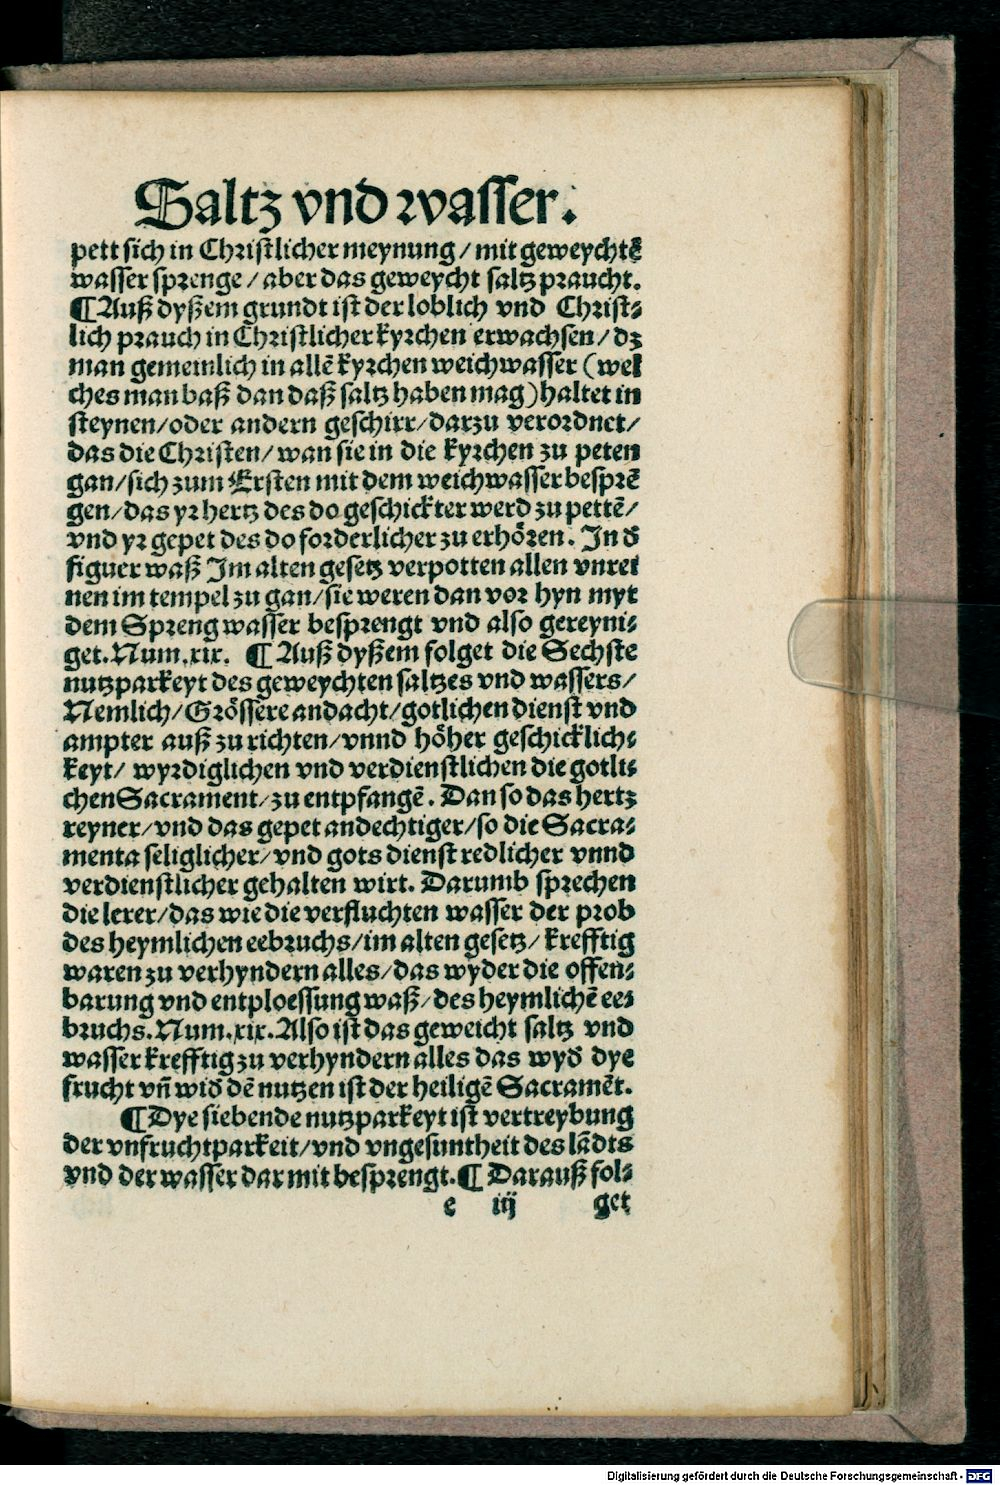 Saltz vnd wasser.
pett sich in Christlicher meynung/ mit geweychtē
wasser sprenge/ aber das geweycht saltz praucht.
¶ Auß dyßem grundt ist der loblich vnd Christ⸗
lich prauch in Christlicher kyrchen erwachsen/ dz
man gemeinlich in allē kyrchen weichwasser (wel
ches man baß dan daß saltz haben mag) haltet in
steynen/ oder andern geschirr/ darzu verordnet/
das die Christen/ wan sie in die kyrchen zu peten
gan/ sich zum Ersten mit dem weichwasser besprē
gen/ das yr hertz des do geschickter werd zu pettē/
vnd yr gepet des do forderlicher zu erhören. In d̄
figuer waß Im alten gesetz verpotten allen vnrei
nen im tempel zu gan/ sie weren dan vor hyn myt
dem Spreng wasser besprengt vnd also gereyni⸗
get. Num.xix. ¶ Auß dyßem folget die Sechste
nutzparkeyt des geweychten saltzes vnd wassers/
Nemlich/ Grössere andacht/ gotlichen dienst vnd
ampter auß zu richten/ vnnd höher geschicklich⸗
keyt/ wyrdiglichen vnd verdienstlichen die gotli⸗
chen Sacrament/ zu entpfangē. Dan so das hertz
reyner/ vnd das gepet andechtiger/ so die Sacra⸗
menta seliglicher/ vnd gots dienst redlicher vnnd
verdienstlicher gehalten wirt. Darumb sprechen
die lerer/ das wie die verfluchten wasser der prob
des heymlichen eebruchs/ im alten gesetz/ krefftig
waren zu verhyndern alles/ das wyder die offen⸗
barung vnd entploessung waß/ des heymlichē ee⸗
bruchs. Num.xix. Also ist das geweicht saltz vnd
wasser krefftig zu verhyndern alles das wyd̄ dye
frucht vn̄ wid̄ dē nutzen ist der heiligē Sacramēt.
¶ Dye siebende nutzparkeyt ist vertreybung
der vnfruchtparkeit/ vnd vngesuntheit des lādts
vnd der wasser dar mit besprengt. ¶ Darauß fol⸗
e iij get
Digitalisierung gefördert durch die Deutsche Forschungsgemeinschaft - DFG